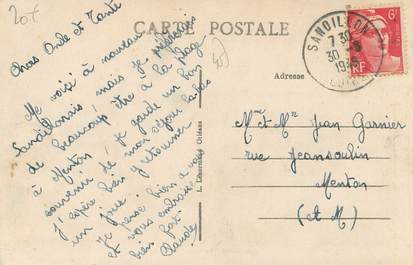 20f
CARTE POSTALE
Chers Oncle et Tante
Me voici à nouveau
Sandillonais mais je préférerais
de beaucoup être à la plage
à Menton. Je garde un bon
souvenir de mon séjour là-bas
J'espère bien y retourner
un jour.
Je pense bien à vous
et vous embrasse
bien fort
Claude
L. Lhermitte, Orléans
SANDILLON
7 30
30
RF
6F
Adresse
Mme et Mr Jean Garnier
rue Jeansoulin
Menton
(A M)